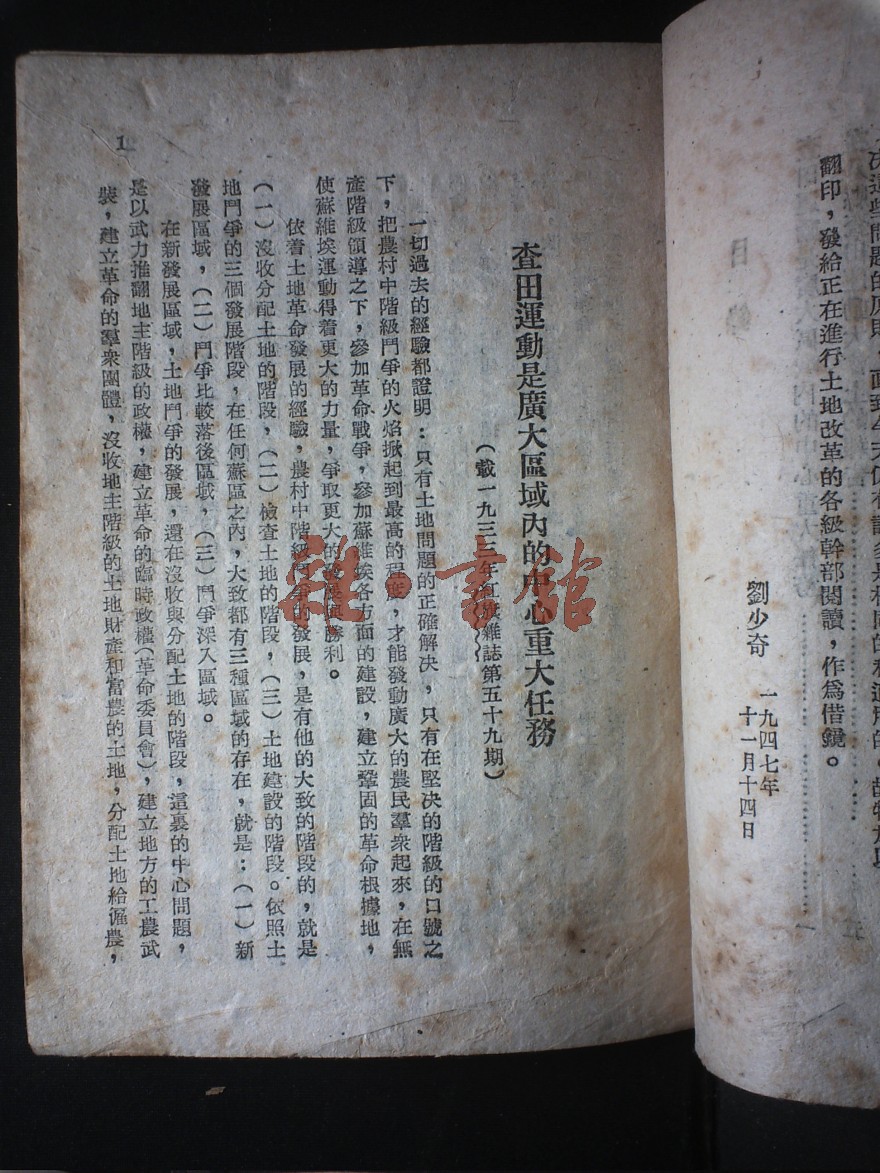 翻印，發給正在進行土地改革的各級幹部閱讀，作為借鏡。
劉少奇
一九四七年
十一月十四日
目錄
1
查田運動是廣大區域內的中心重大任務
（載一九三三年紅旗雜誌第五十九期）
一切過去的經驗都證明：只有土地問題的正確解決，只有在堅決的階級的口號之
下，把農村中階級鬥爭的火焰掀起到最高的程度，才能發動廣大的農民羣衆起來，在無
產階級領導之下，參加革命戰爭，參加蘇維埃各方面的建設，建立鞏固的革命根據地，
使蘇維埃運動得着更大的力量，爭取更大的發展與勝利。
依着土地革命發展的經驗，農村中階級鬥爭的發展，是有他的大致的階段的，就是
（一）沒收分配土地的階段，（二）檢查土地的階段，（三）土地建設的階段。依照土
地鬥爭的三個發展階段，在任何蘇區之內，大致都有三種區域的存在，就是：（一）新
發展區域，（二）鬥爭比較落後區域，（三）鬥爭深入區域。
在新發展區域，土地鬥爭的發展，還在沒收與分配土地的階段，這裏的中心問題，
是以武力推翻地主階級的政權，建立革命的臨時政權（革命委員會），建立地方的工農武
裝，建立革命的羣衆團體，沒收地主階級的土地財產和富農的土地，分配土地給僱農，
雜·書館